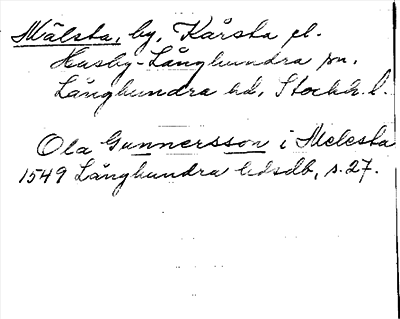 Mälsta, by, Kårsta pl.
Husby-Långhundra sn,
Långhundra hd, Stockh. l.
Ola Gunnersson i Melesta
1549 Långhundra hdsdb, s. 27.